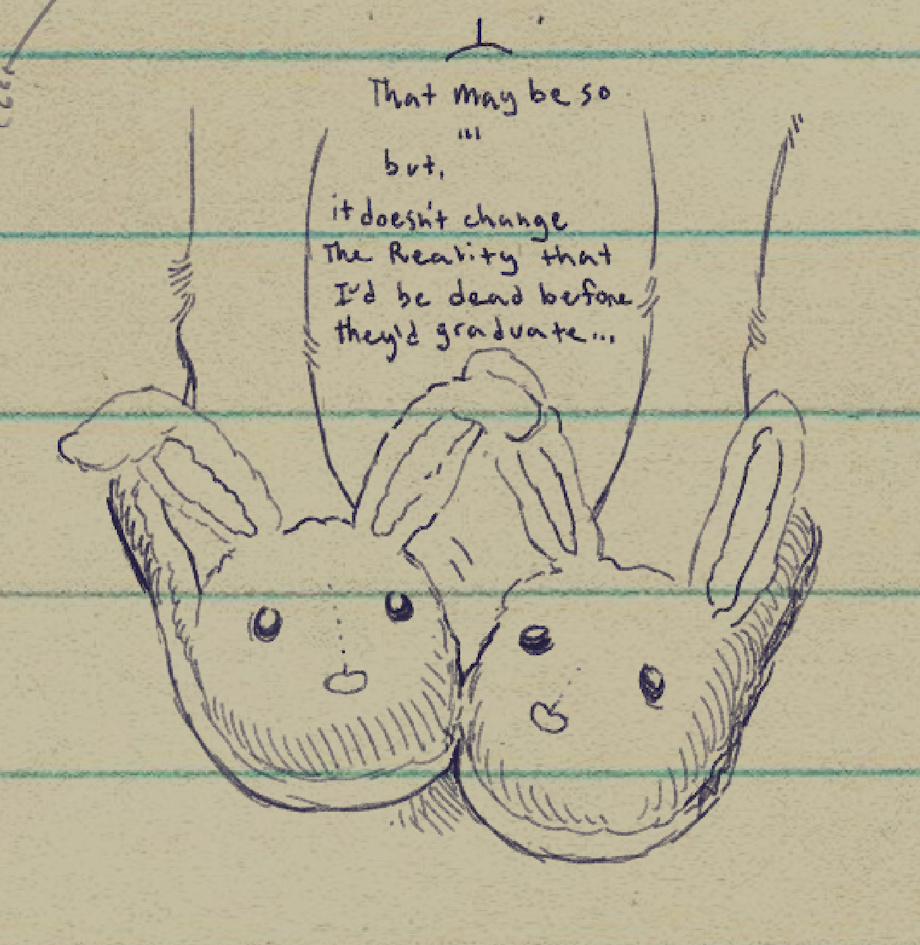 That may be so
...
but,
it doesn't change
The Reality that
I'd be dead before
they'd graduate...